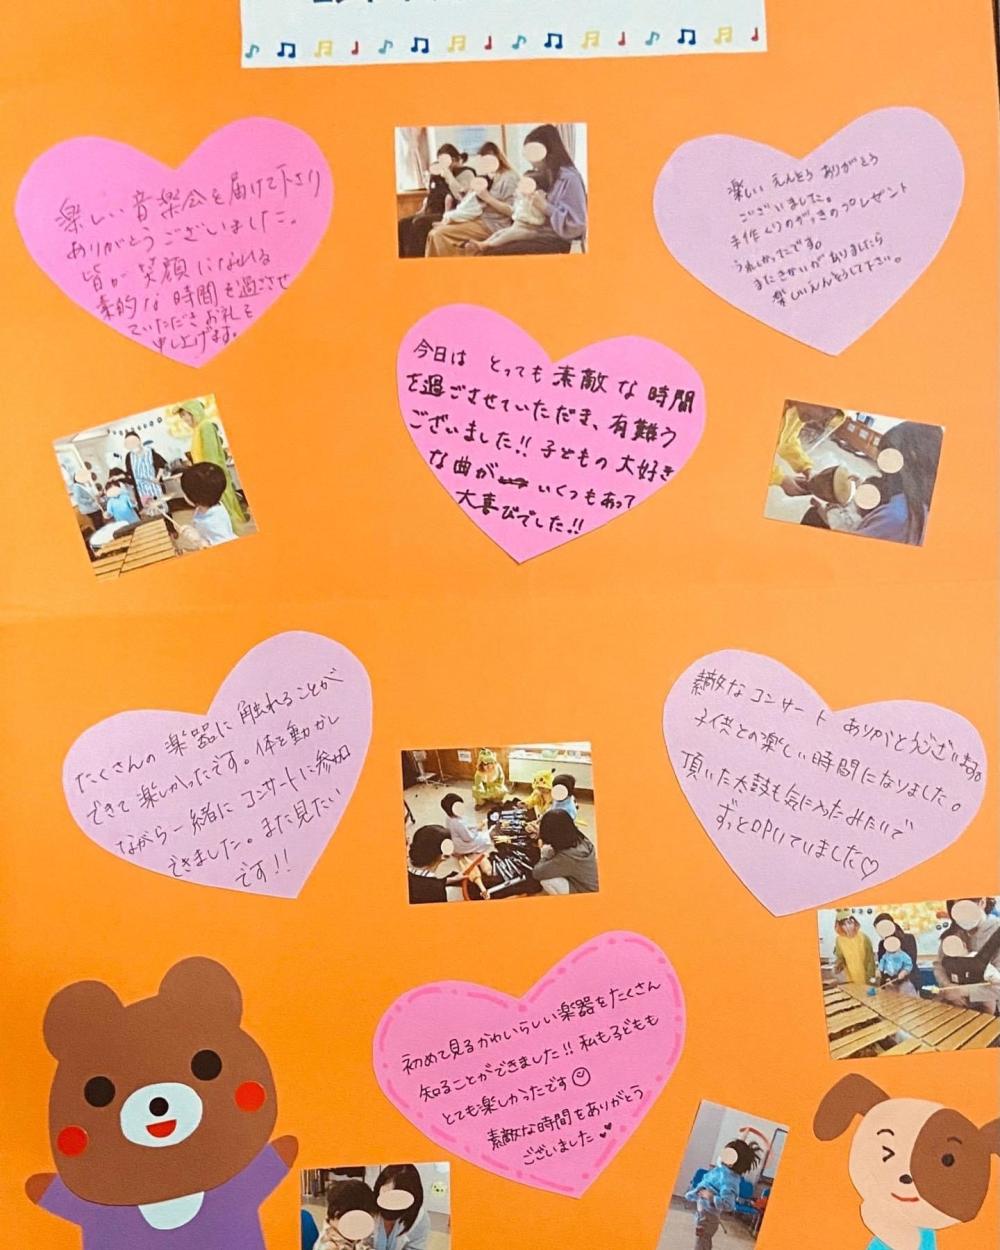 楽しい音楽会を届けて下さり
ありがとうございました。
皆が笑顔になれる
素的な時間を過ごさせ
ていただきお礼を
申し上げます。
楽しい えんそう ありがとう
ございました。
手作くりのがっきのプレゼント
うれしかったです。
またきかいがありましたら
楽しいえんそうして下さい。
今日は とっても 素敵な時間
を過ごさせていただき、有難う
ございました!! 子どもの 大好き
な曲が いくつもあって
大喜びでした!!
たくさんの 楽器に 触れることが
できて 楽しかったです。体を動かし
ながら一緒に コンサートに参加
できました。また見たい
です!!
素敵なコンサート ありがとうございます。
子供との楽しい時間になりました。
頂いた太鼓も気に入ったみたいで
ずっと叩いていました♡
初めて見るかわいらしい楽器をたくさん
知ることができました!! 私も子どもも
とても楽しかったです☺
素敵な時間をありがとう
ございました♥♥